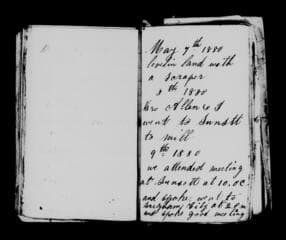 May 7th 1880
levelin land with
a scraper
8th 1880
Bro Allen & I
went to Sunsett
to mill
9th 1880
we attended meeting
at Sunsett at 10.oc
and spoke. went to
Brigham City at 2 pm
and spoke good meeting